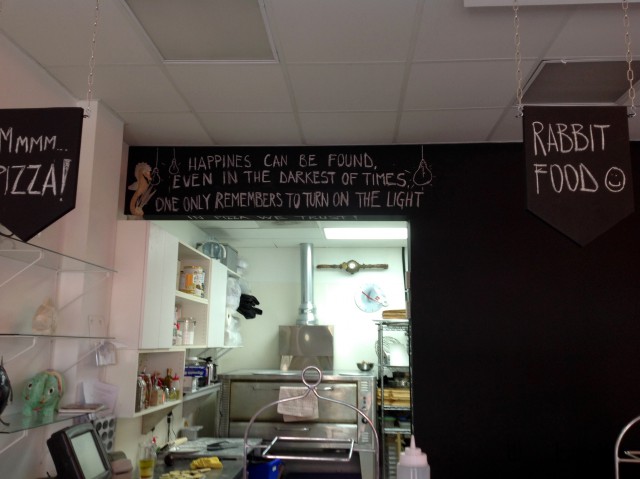 Mmmm...
PIZZA!
HAPPINES CAN BE FOUND,
EVEN IN THE DARKEST OF TIMES,
ONE ONLY REMEMBERS TO TURN ON THE LIGHT
IN PIZZA WE TRUST!
RABBIT
FOOD